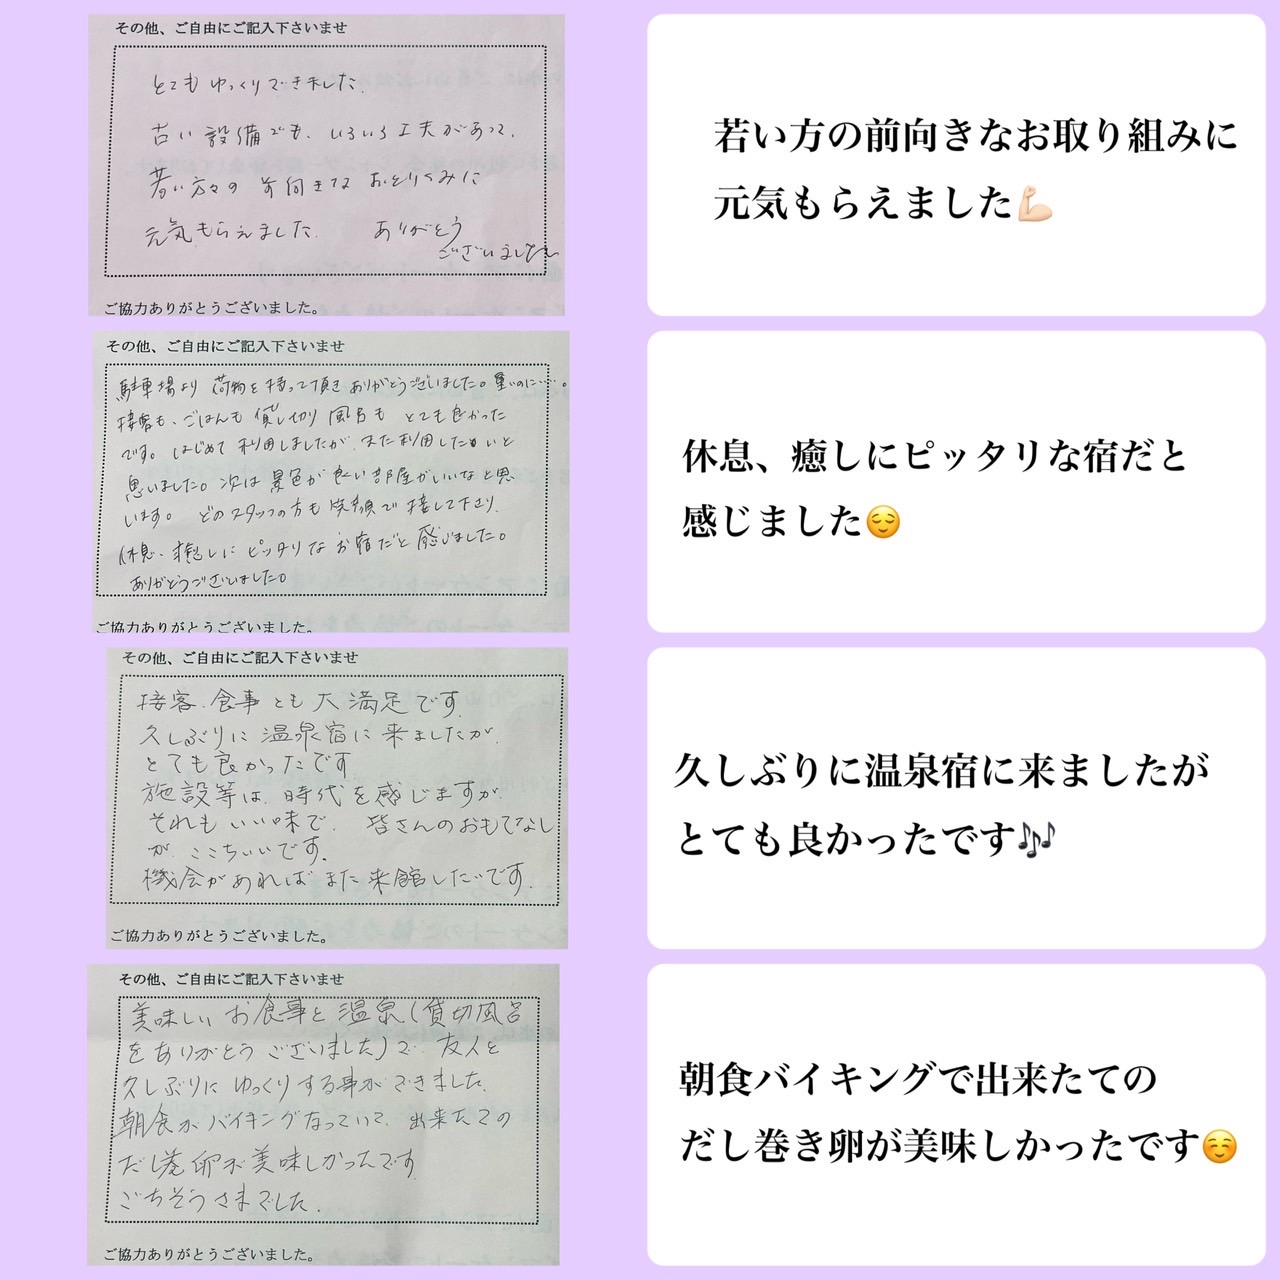 その他、ご自由にご記入下さいませ
とてもゆっくりできました。
古い設備でも、いろいろ工夫があって、
若い方々の前向きなおとりくみに
元気もらえました。 ありがとう
ございました
ご協力ありがとうございました。
若い方の前向きなお取り組みに
元気もらえました💪🏻
その他、ご自由にご記入下さいませ
駐車場より荷物を持って頂きありがとうございました。重いのに…。
接客も、ごはんも貸し切り風呂もとても良かった
です。はじめて利用しましたが、また利用したいと
思いました。次は景色が良い部屋がいいなと思
います。どのスタッフの方も笑顔で接して下さり、
休息、癒しにピッタリなお宿だと感じました。
ありがとうございました。
ご協力ありがとうございました。
休息、癒しにピッタリな宿だと
感じました😌
その他、ご自由にご記入下さいませ
接客、食事とも大満足です。
久しぶりに温泉宿に来ましたが、
とても良かったです
施設等は、時代を感じますが、
それもいい味で、皆さんのおもてなし
が、ここちいいです。
機会があればまた来館したいです。
ご協力ありがとうございました。
久しぶりに温泉宿に来ましたが
とても良かったです🎶
その他、ご自由にご記入下さいませ
美味しいお食事と温泉(貸切風呂
をありがとうございました)で、友人と
久しぶりにゆっくりする事ができました。
朝食がバイキングなっていて、出来たての
だし巻卵が美味しかったです
ごちそうさまでした。
ご協力ありがとうございました。
朝食バイキングで出来たての
だし巻き卵が美味しかったです☺️